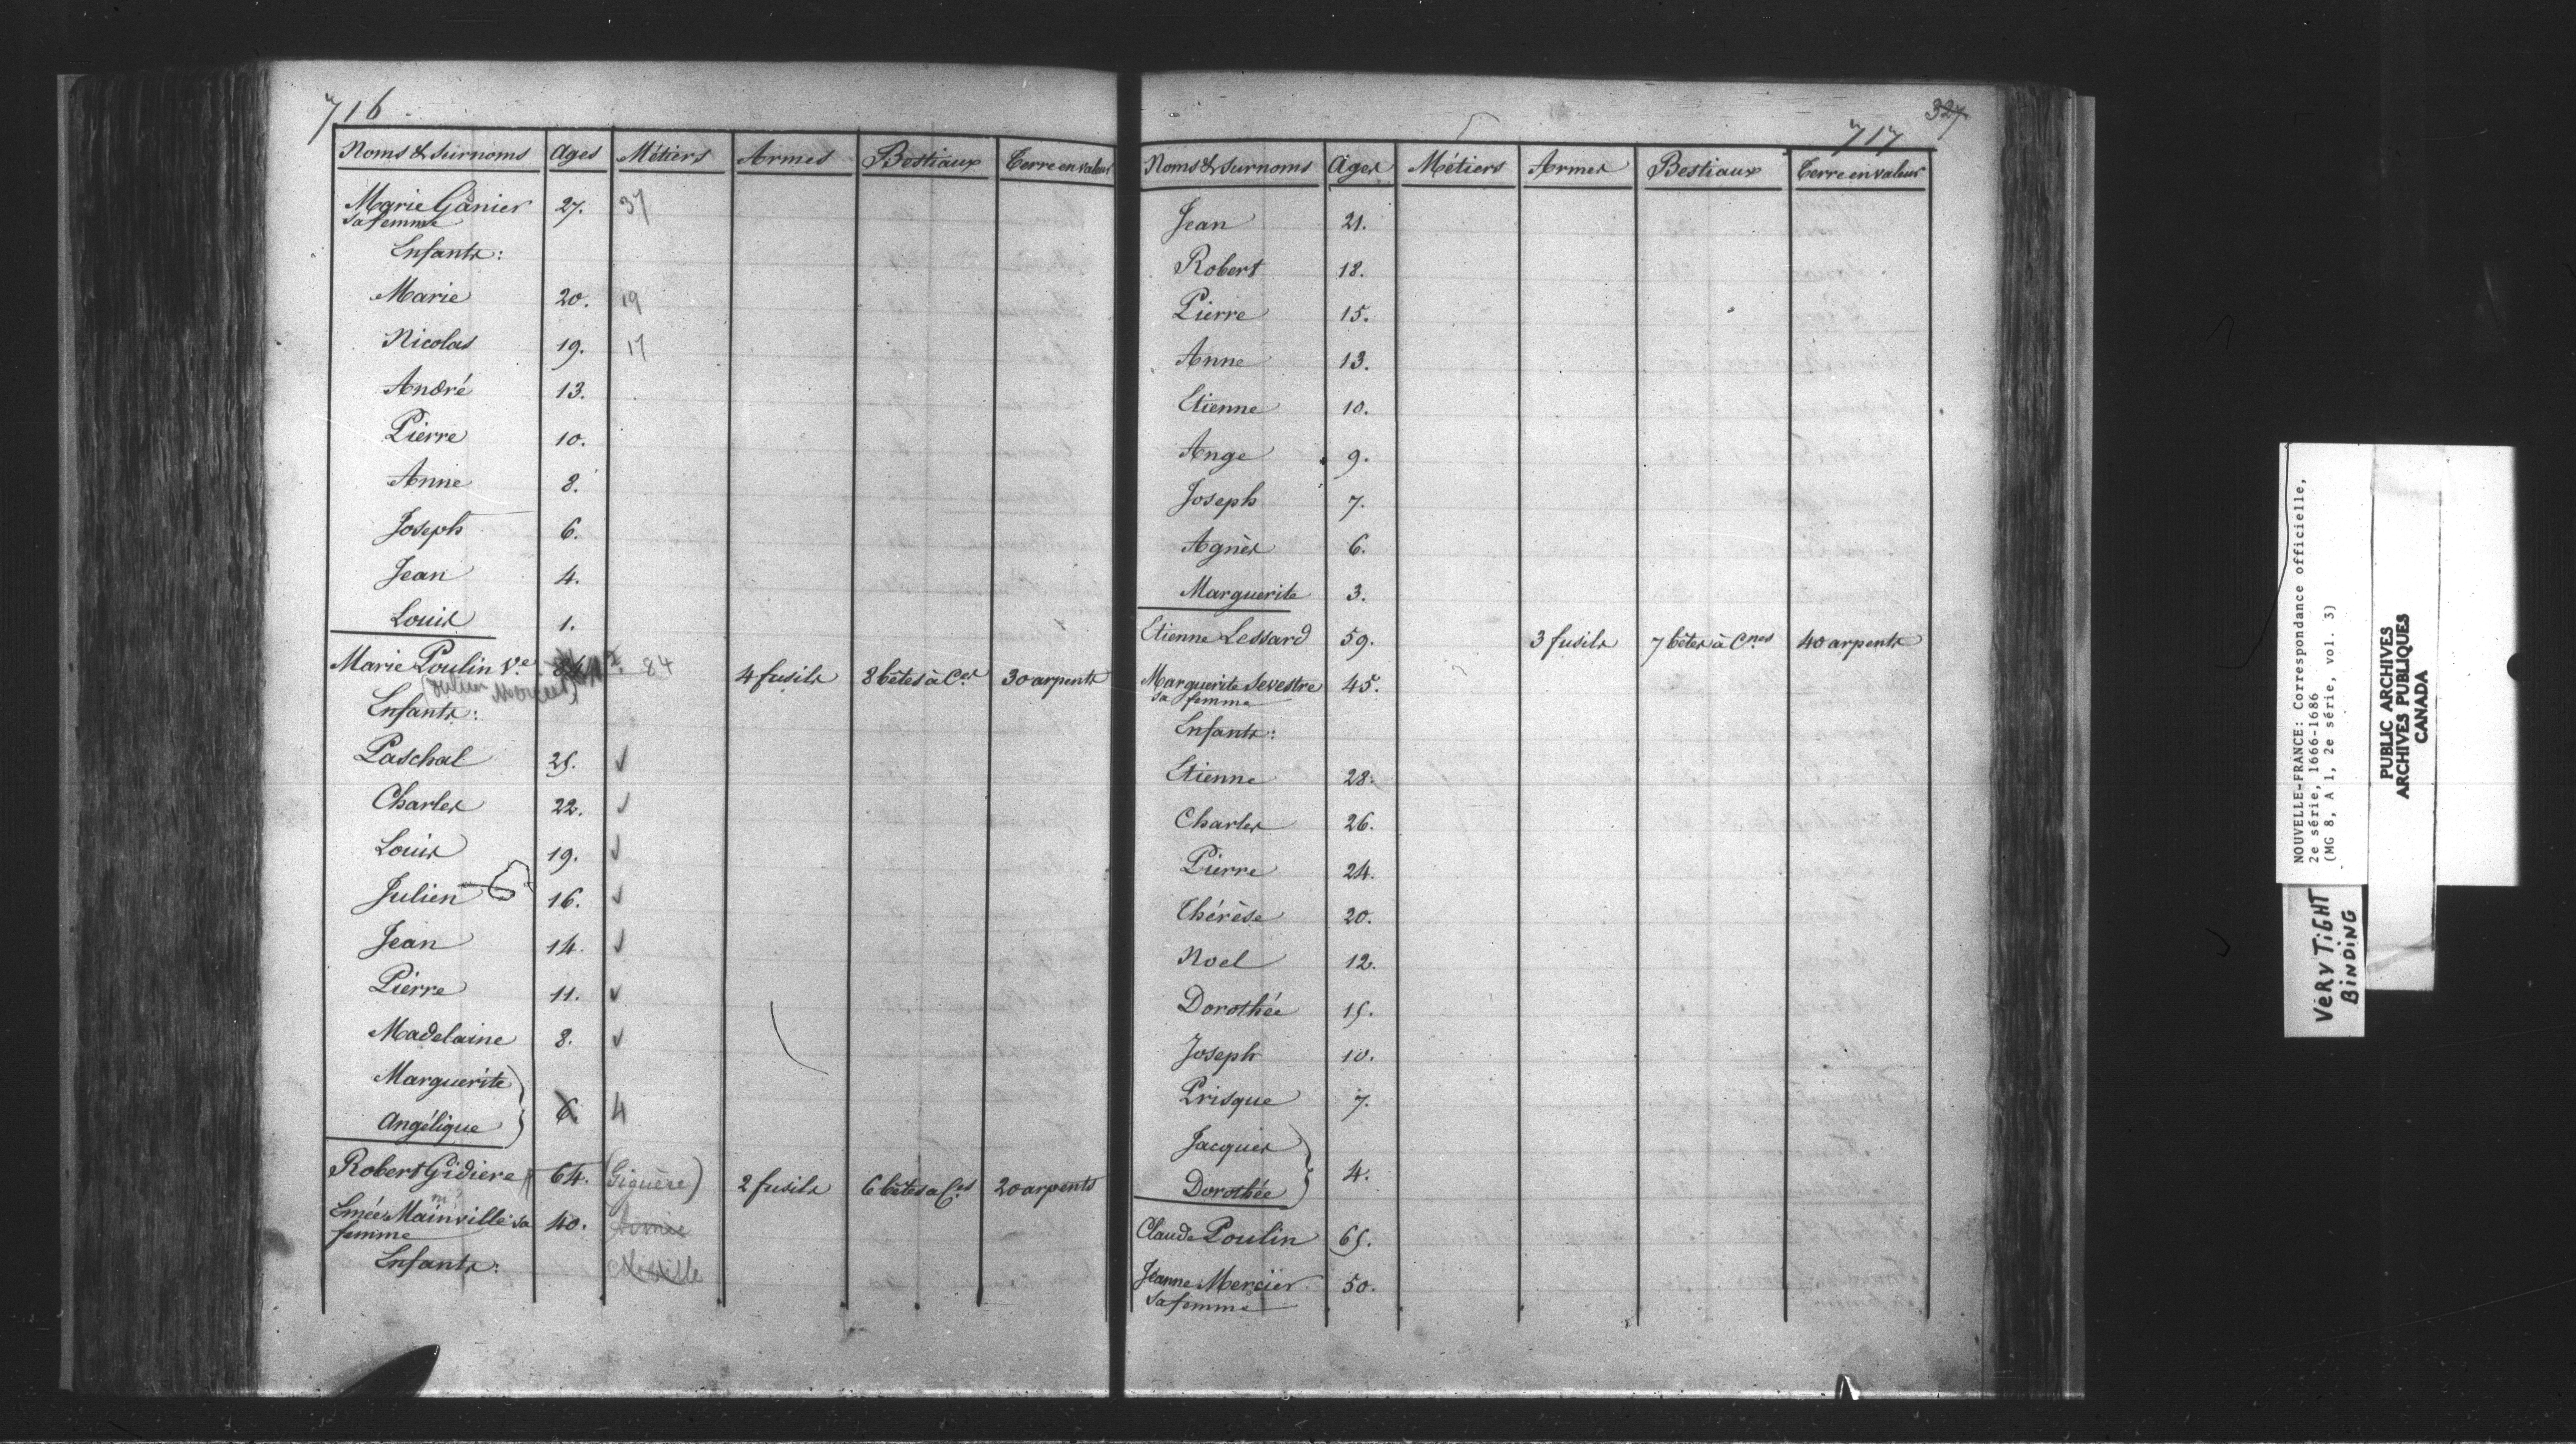 716
Noms & Surnoms Ages Métiers Armes Bestiaux Terre en valeur
Marie Gânier 27. 37
sa femme
Enfants:
Marie 20. 19
Nicolas 19. 17
André 13.
Pierre 10.
Anne 8.
Joseph 6.
Jean 4.
Louis 1.
Marie Poulin Ve 84 4 fusils 8 bêtes à Ces 30 arpents
(Julien Mercier)
Enfants:
Paschal 25. ✓
Charles 22. ✓
Louis 19. ✓
Julien 16. ✓
Jean 14. ✓
Pierre 11. ✓
Madelaine 8. ✓
Marguerite }
6. 4
Angélique }
Robert Gidiere 64. (Giguère) 2 fusils 6 bêtes à Ces 20 arpents
Emée Mainville sa 40. Aimée
femme
Enfants: Miville
327
717
Noms & Surnoms Ages Métiers Armes Bestiaux Terre en valeur
Jean 21.
Robert 18.
Pierre 15.
Anne 13.
Etienne 10.
Ange 9.
Joseph 7.
Agnès 6.
Marguerite 3.
Etienne Lessard 59. 3 fusils 7 bêtes à Cnes 40 arpents
Marguerite Sevestre 45.
sa femme
Enfants:
Etienne 28.
Charles 26.
Pierre 24.
Thérèse 20.
Noel 12.
Dorothée 15.
Joseph 10.
Prisque 7.
Jacques }
4.
Dorothée }
Claude Poulin 65.
Jeanne Mercier 50.
sa femme
NOUVELLE-FRANCE: Correspondance officielle,
2e série, 1666-1686
(MG 8, A 1, 2e série, vol. 3)
PUBLIC ARCHIVES
ARCHIVES PUBLIQUES
CANADA
VERY TIGHT
BINDING